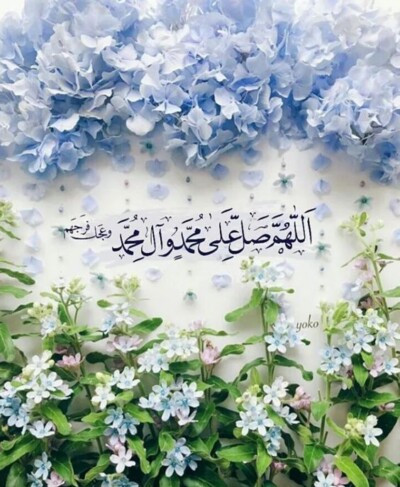 اَللّٰهُمَّ صَلِّ عَلىٰ مُحَمَّدٍ وَآلِ مُحَمَّدٍ وَعَجِّل فَرَجَهُم
yoko